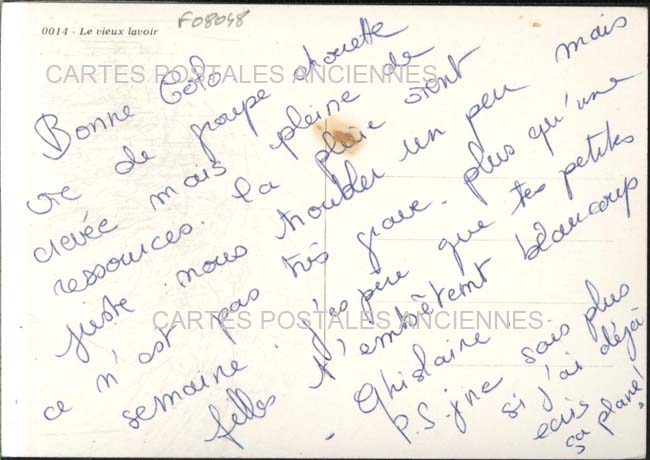 F08048
0014 - Le vieux lavoir
CARTES POSTALES ANCIENNES
Bonne Colo
vie de groupe chouette
crevée mais pleine de
ressources. La pluie vient
juste nous troubler un peu mais
ce n'est pas très grave. plus qu'une
semaine. j'espère que tes petites
filles t'embêtent beaucoup
CARTES POSTALES ANCIENNES
- Ghislaine
P.S. jne sais plus
si j'ai déjà
écris
ça plane!